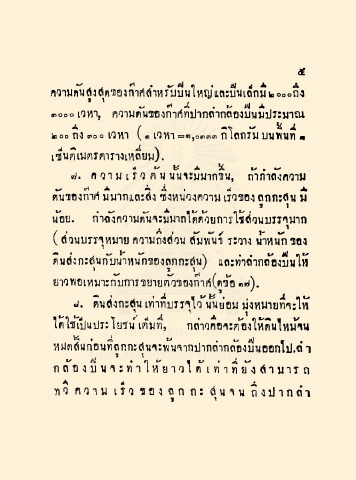 ๕
ความดันสูงสุดของก๊าศสำหรับปืนใหญ่และปืนเล็กมี ๒๐๐๐ ถึง
๓๐๐๐ เวหา, ความดันของก๊าศที่ปากลำกล้องปืนมีประมาณ
๒๐๐ ถึง ๓๐๐ เวหา ( ๑ เวหา = ๑,๐๓๓๓ กิโลกรัม บนพื้นที่ ๑
เซ็นติเมตรตารางเหลี่ยม).
๗. ความเร็วต้นนั้นจะมีมากขึ้น, ถ้ากำลังความ
ดันของก๊าศมีมากและสิ่งซึ่งหน่วงความเร็วของลูกกะสุนมี
น้อย. กำลังความดันจะมีมากได้ด้วยการใช้ส่วนบรรจุมาก
( ส่วนบรรจุหมายความถึงส่วนสัมพันธ์ระวางน้ำหนักของ
ดินส่งกะสุนกับน้ำหนักของลูกกะสุน) และทำลำกล้องปืนให้
ยาวพอเหมาะกับการขยายตัวของก๊าศ (ดูข้อ ๓๗).
๘. ดินส่งกะสุนเท่าที่บรรจุไว้นั้นย่อมมุ่งหมายที่จะให้
ได้ใช้เป็นประโยชน์เต็มที่, กล่าวคือจะต้องให้ดินไหม้จน
หมดสิ้นก่อนที่ลูกกะสุนจะพ้นจากปากลำกล้องปืนออกไป. ลำ
กล้องปืนจะทำให้ยาวได้เท่าที่ยังสามารถ
ทวีความเร็วของลูกกะสุนจนถึงปากลำ